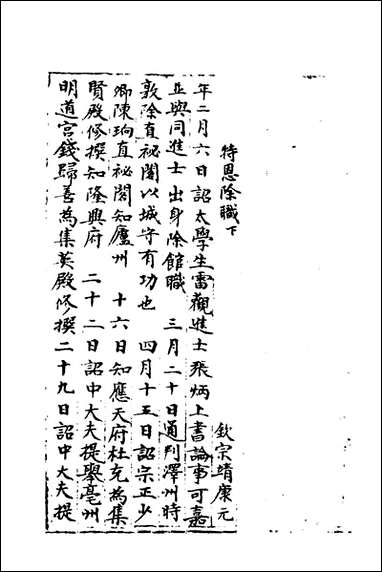 特恩除職下
欽宗靖康元
年二月六日詔太學生雷觀進士張炳上書論事可嘉
並與同進士出身除館職　三月二十日通判澤州時
敦除直祕閣以城守有功也　四月十五日詔宗正少
卿陳珦直祕閣知廬州　十六日知應天府杜充為集
賢殿修撰知隆興府　二十二日詔中大夫提舉亳州
明道宮錢歸善為集英殿修撰二十九日詔中大夫提